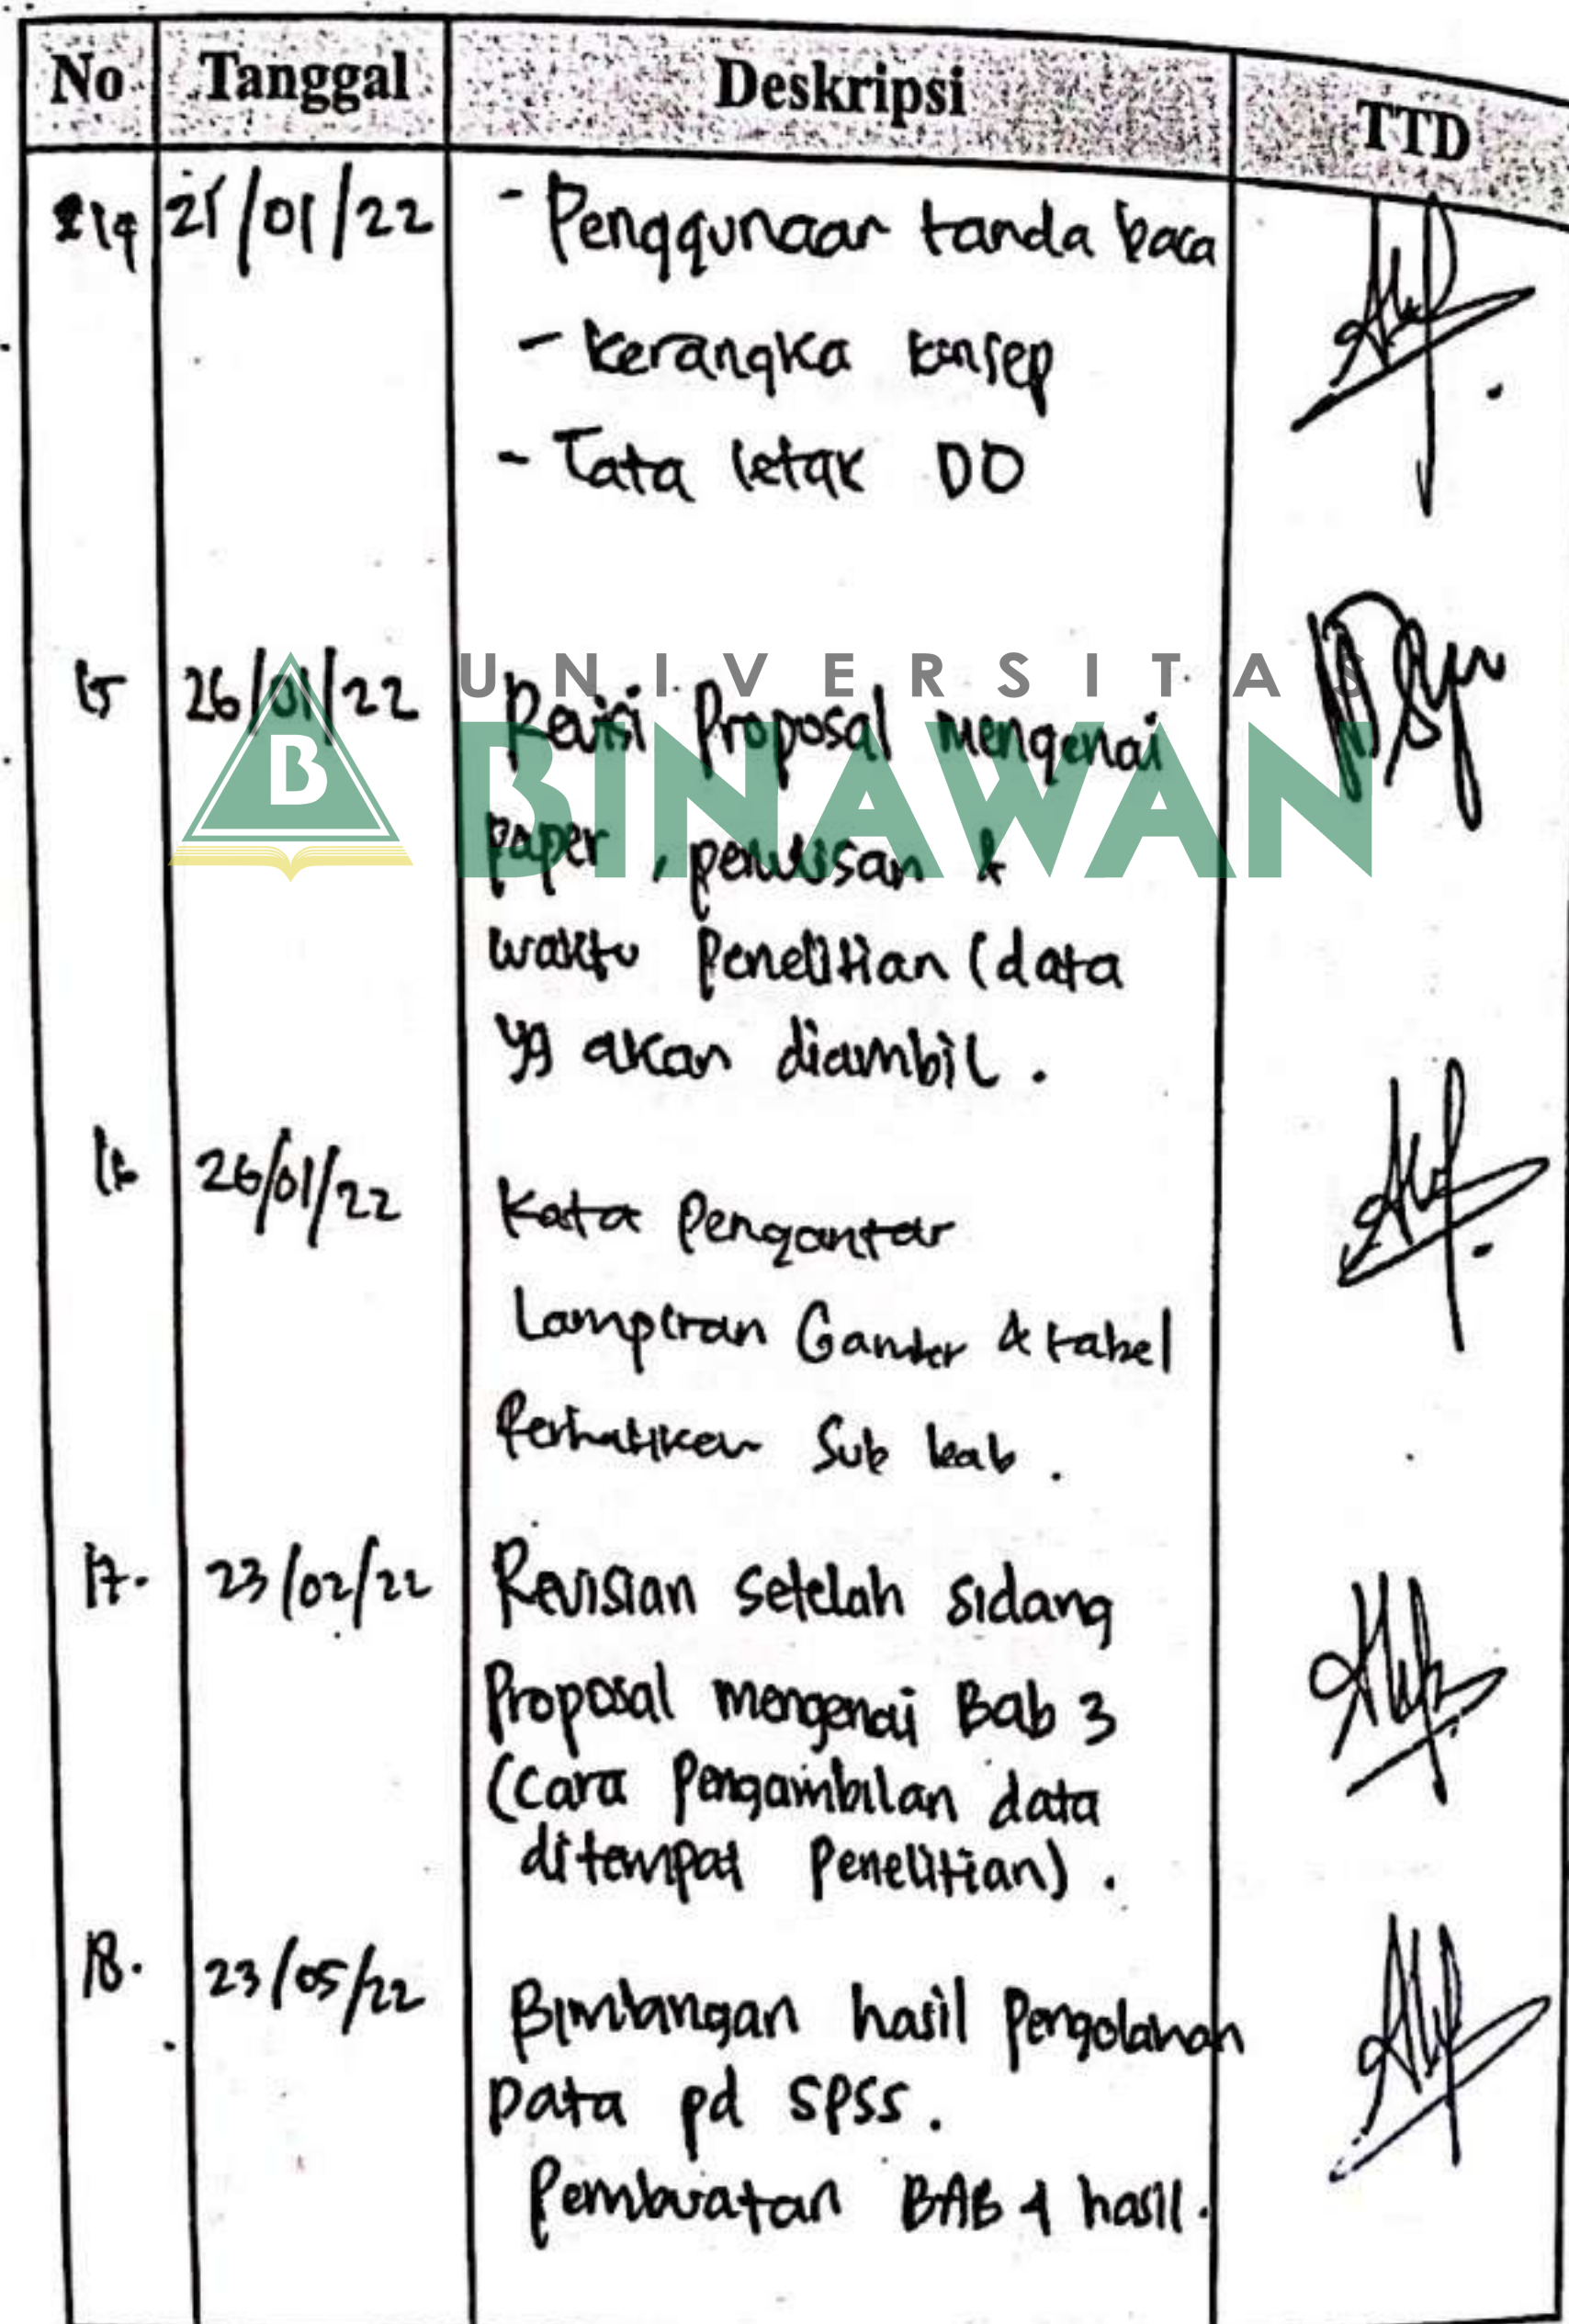 No Tanggal Deskripsi TTD
14 25/01/22 - Penggunaan tanda baca
- Kerangka konsep
- Tata letak DO
UNIVERSITAS
B BINAWAN
15 26/01/22 Revisi Proposal mengenai
paper, penulisan &
waktu Penelitian (data
yg akan diambil.
16 26/01/22 Kata Pengantar
Lampiran Gambar & tabel
Perhatikan Sub bab.
17. 23/02/22 Revisian setelah sidang
Proposal mengenai Bab 3
(Cara Pengambilan data
ditempat Penelitian).
18. 23/05/22 Bimbingan hasil Pengolahan
Data pd SPSS.
Pembuatan BAB 4 hasil.